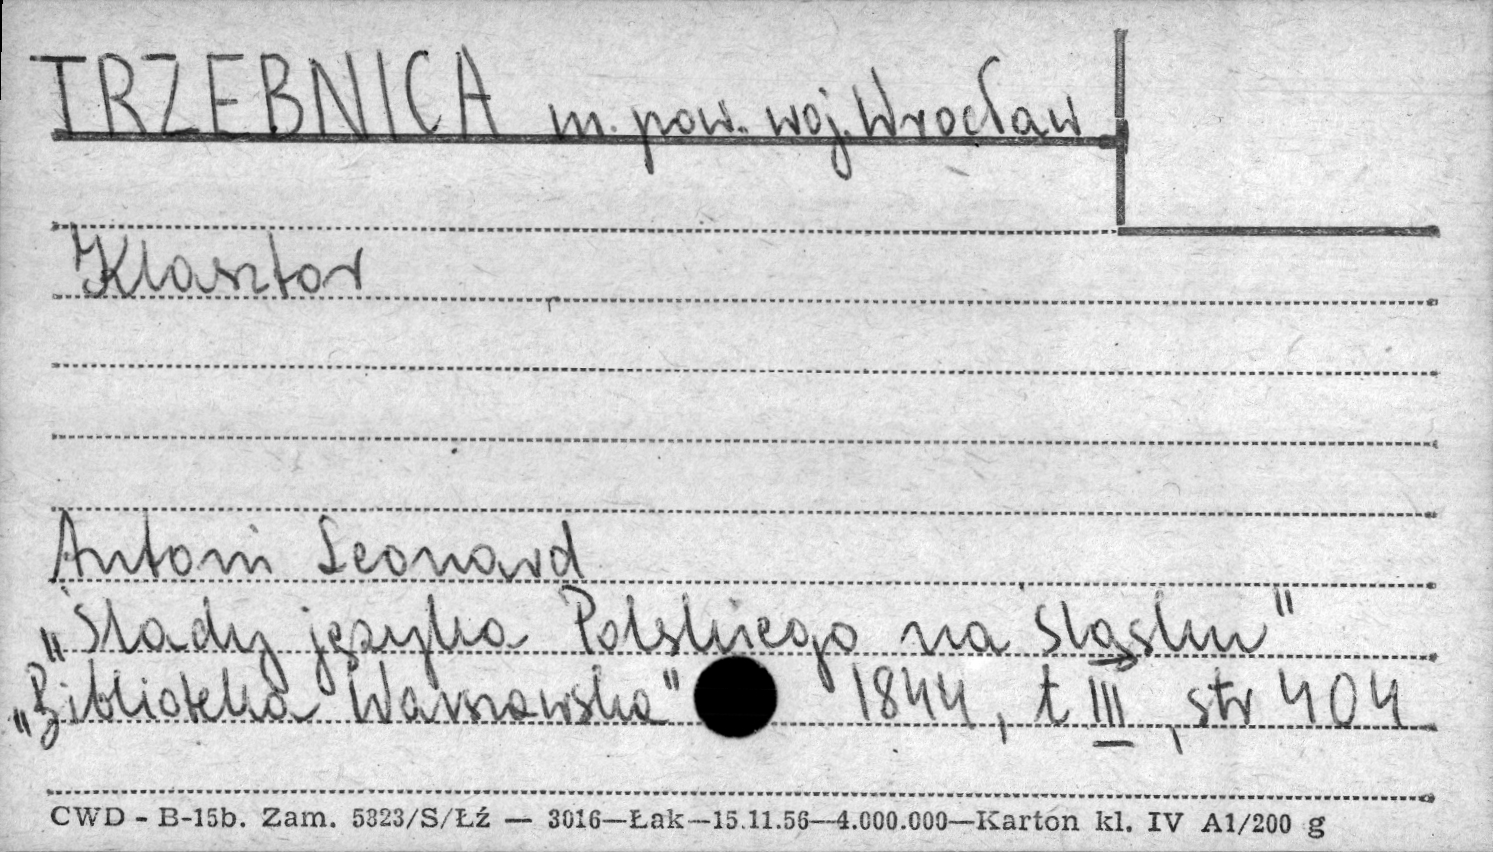 TRZEBNICA m. pow. woj. Wrocław
Klasztor
Antoni Leonard
„Slady języka Polskiego na sląsku"
„Biblioteka Warszawska" 1844, t III, str 404
CWD - B-15b. Zam. 5323/S/Łź — 3016—Łak—15.11.56—4.000.000—Karton kl. IV A1/200 g